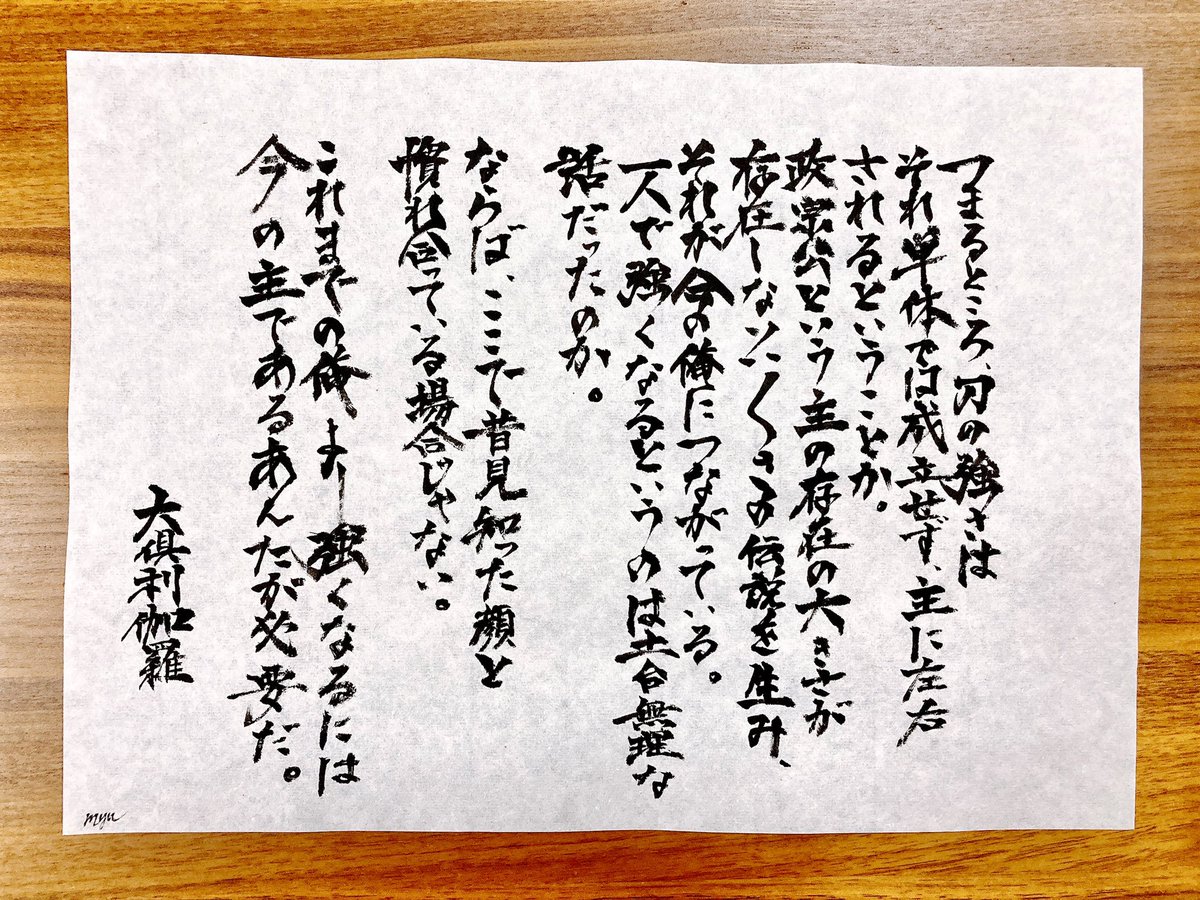 つまるところ、刀の強さは
それ単体では成立せず、主に左右
されるということか。
政宗公という主の存在の大きさが
存在しないはくさの伝説を生み、
それが今の俺につながっている。
一人で強くなるというのは土台無理な
話だったのか。
ならば、ここで昔見知った顔と
慣れ合っている場合じゃない。
これまでの俺より強くなるには
今の主であるあんたが必要だ。
大倶利伽羅
myu